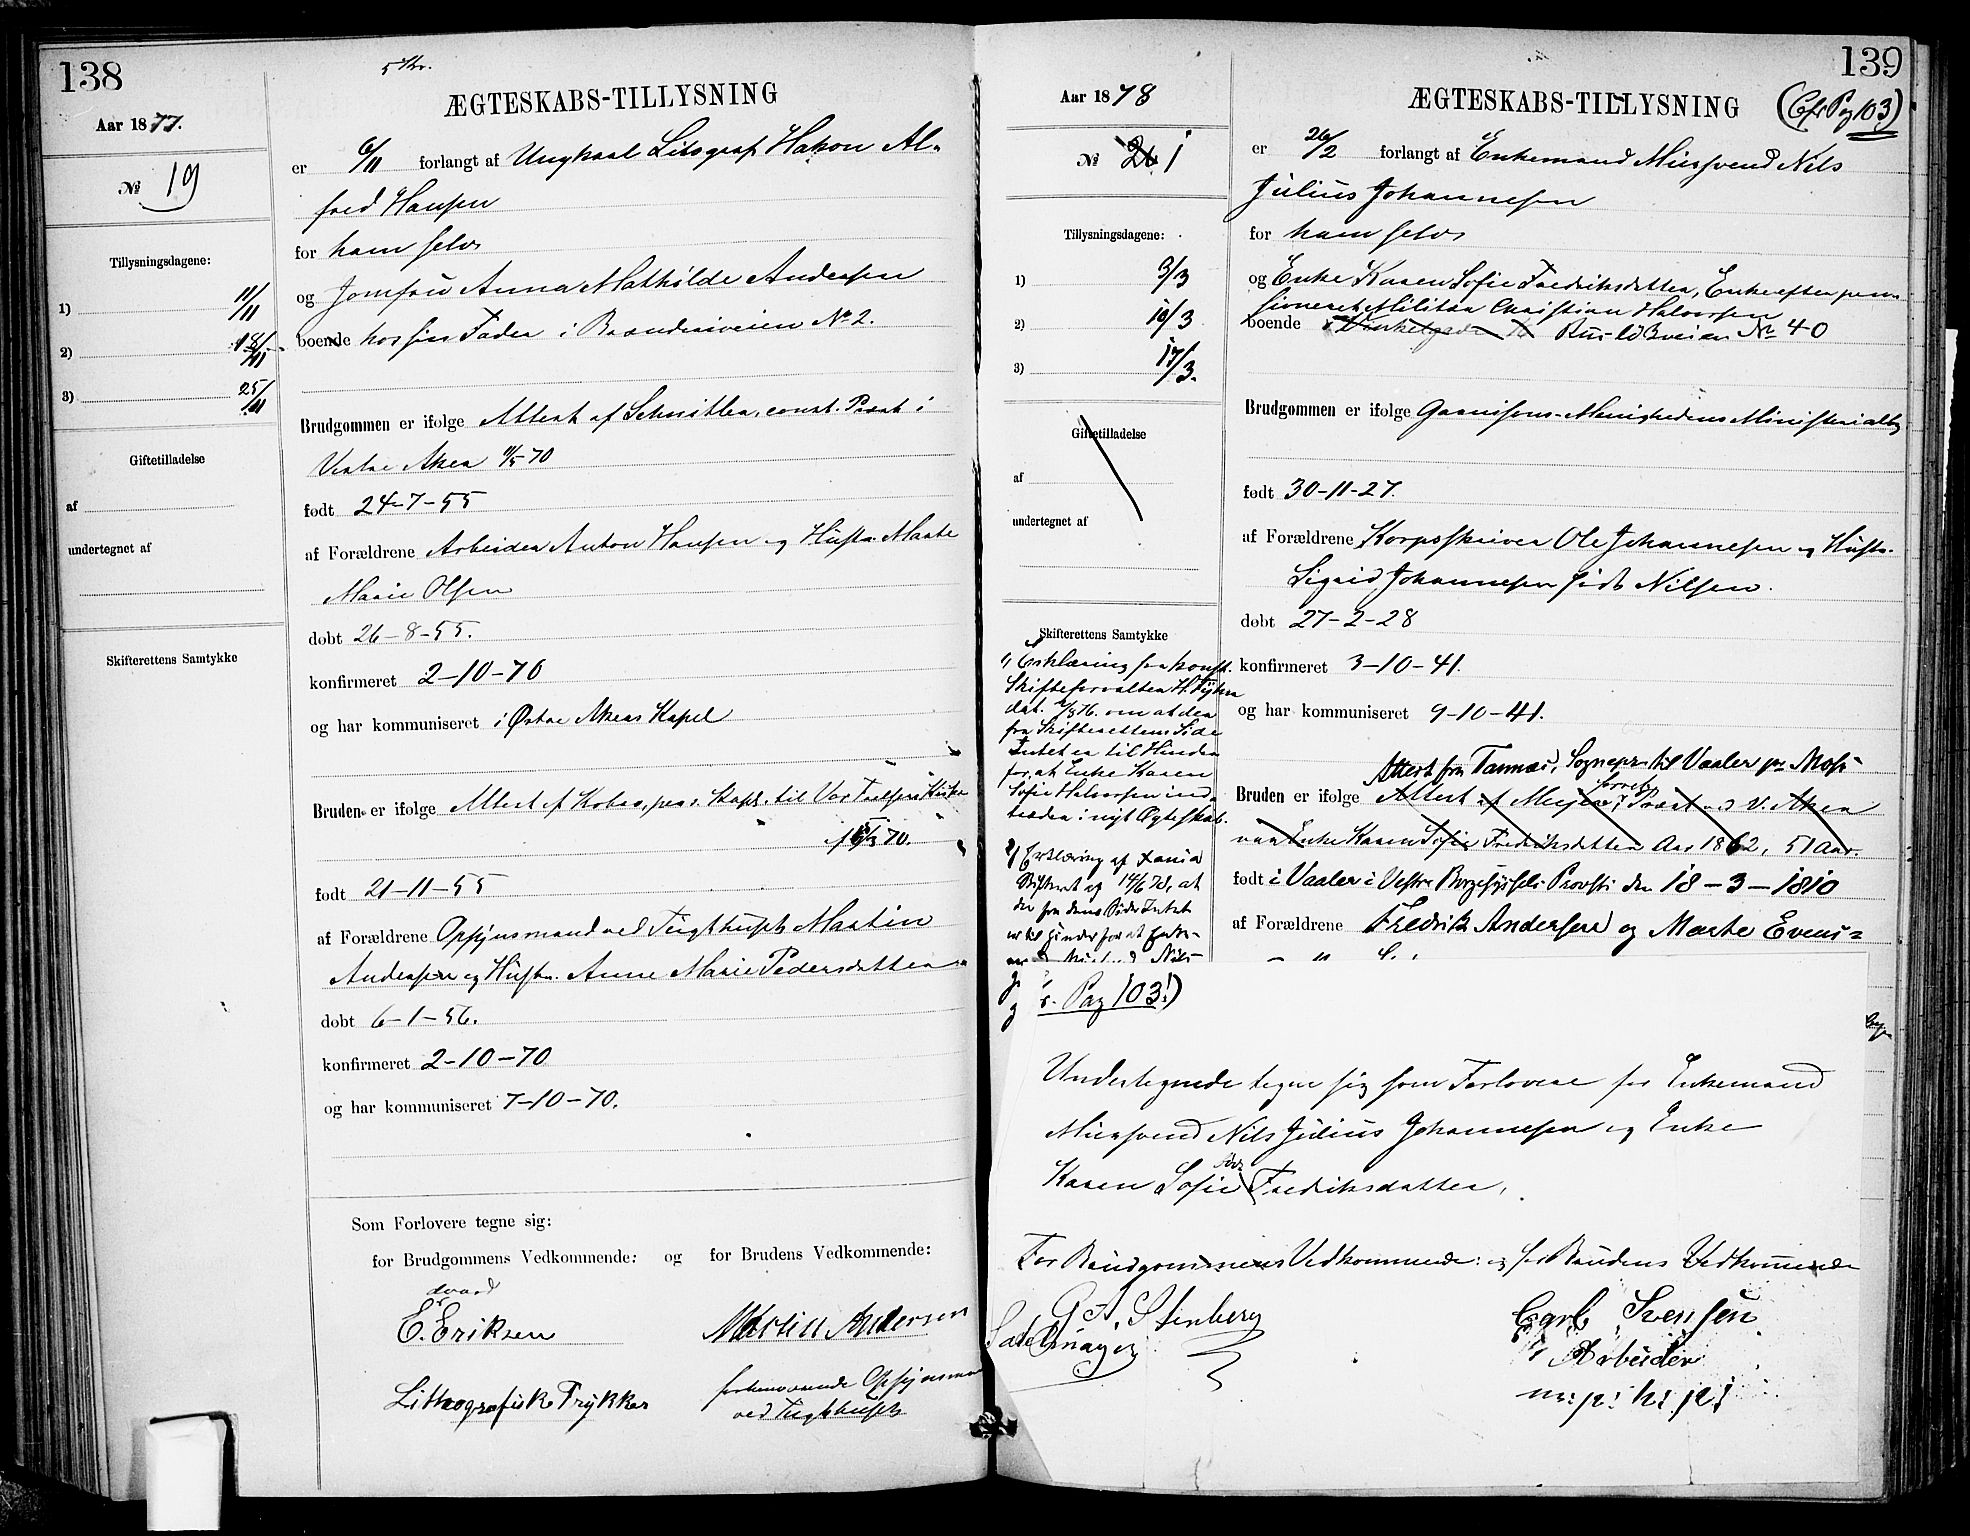 138
5 Kr.
ÆGTESKABS-TILLYSNING
Aar 1877.
№ 19
er 6/11 forlangt af Ungkarl Litograf Hakon Al-
fred Hansen
for ham selv
og Jomfru Anna Mathilde Andersen
boende hos sin Fader i Brænderiveien No 2.
Tillysningsdagene:
1) 11/11
2) 18/11
3) 25/11
Giftetilladelse
af
undertegnet af
Skifterettens Samtykke
Brudgommen er ifølge Attest af Schnitler, const. Præst i
Vestre Aker 11/5 70
født 24-7-55
af Forældrene Arbeider Anton Hansen og Hustr. Marte
Marie Olsen
døbt 26-8-55.
konfirmeret 2-10-70
og har kommuniseret i Østre Akers Kapel
Bruden er ifølge Attest af pers. Kapl. til Vor Frelsers Kirke
70.
født 21-11-55
af Forældrene Opsynsmand ved Tugthuset Martin
Andersen og Hustr. Anne Marie Pedersdatter
døbt 6-1-56.
konfirmeret 2-10-70
og har kommuniseret 7-10-70.
Som Forlovere tegne sig:
for Brudgommens Vedkommende: og for Brudens Vedkommende:
dvard
E. Eriksen
Martin Andersen
Lithografisk Trykker
forhenværende Opsynsma
ved Tugthuset
139
ÆGTESKABS-TILLYSNING (Cfr Pag 103)
Aar 1878
№ 261
er 26/2 forlangt af Enkemand Mursvend Nils
Julius Johannesen
for ham selv
og Enke Karen Sofie Fredriksdatter, Enke efter pen-
sioneret Militær Christian Halvorsen
boende i 16 Ruseløkveien No 40
Tillysningsdagene:
1) 3/3
2) 10/3
3) 17/3.
Giftetilladelse
af
undertegnet af
Brudgommen er ifølge Garnisons-Menighedens Ministerialbg
født 30-11-27.
af Forældrene Korpsskriver Ole Johannesen og Hustr.
Sigrid Johannesen født Nilsen.
døbt 27-2-28
konfirmeret 3-10-41.
og har kommuniseret 9-10-41.
Skifterettens Samtykke
1) Erklæring fra konst.
Skifteforvalter
dat. /8 76. om at der
fra Skifterettens Side
Intet er til Hinder
for, at Enke Karen
Sofie Halvorsen ind-
træder i nyt Ægteskab.
2) Erklæring af
Skifteret af 14/2 78, at
der fra dens Side Intet
er til Hinder for at Enke-
Mursvend Nils
Attest fra Sognepr. til Vaaler pr Moss
Bruden er ifølge Attest af Meyer, Præst ved V. Aker
var Enke Karen Sofie Fredriksdatter Aar 1862, 51 Aar.
født i Vaaler i Vestre Borgesyssels Provsti den 18-3-1810
af Forældrene Fredrik Andersen og Marte Evens-
s. Pag 103!)
Undertegnede tegner sig som Forlovere for Enkemand
Mursvend Nils Julius Johannesen og Enke
Karen Sofie Fredriksdatter.
For Brudgommens Vedkommende: og for Brudens Vedkommende
G. A. Stenberg
Sadelmager
Carl Svensen
Arbeider
m: p: h: p: